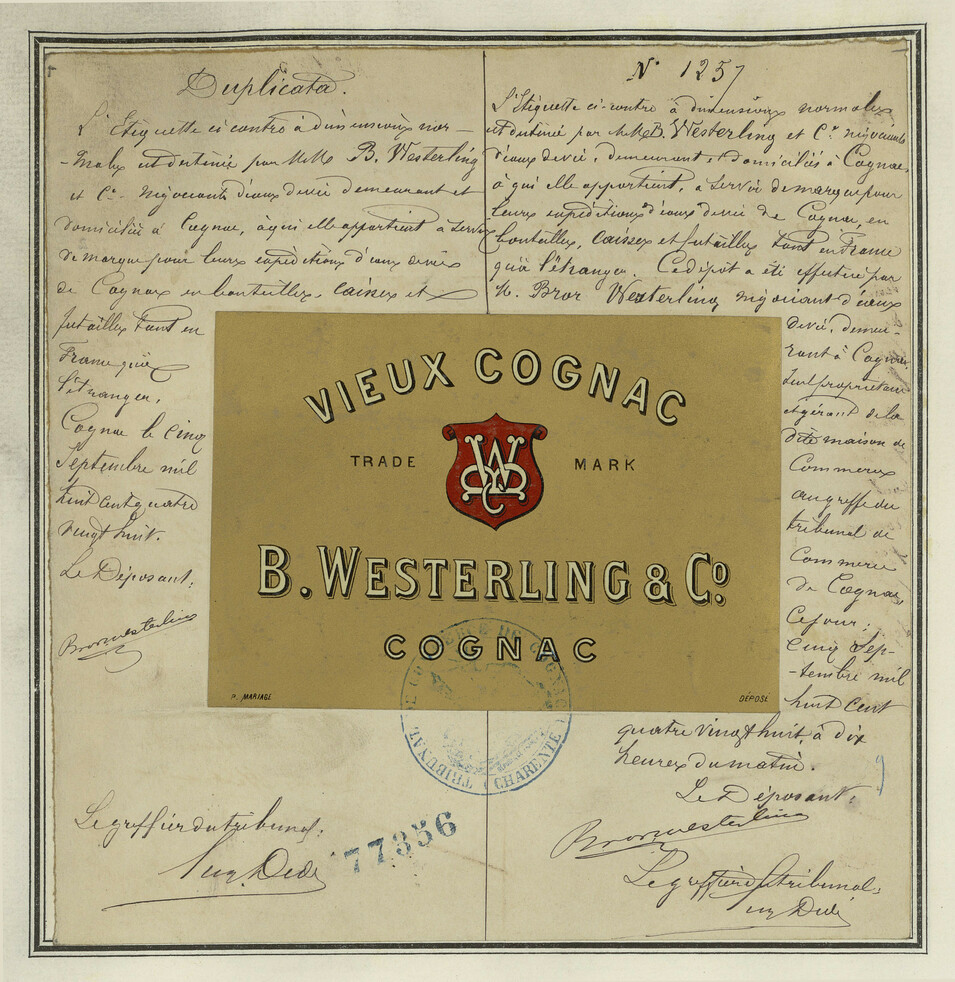 Duplicata.
L'Etiquette ci contre à dimensions nor-
-males est destinée par M.M. B. Westerling
et Cie. Négociants d'eaux de vie demeurant et
domiciliés à Cognac, à qui elle appartient a servir
de marque pour leurs expéditions d'eaux de vies
de Cognac en bouteilles, caisses et
futailles tant en
France qu'à
l'étranger.
Cognac le cinq
Septembre mil
huit cent quatre
vingt huit.
Le Déposant:
Bror Westerling
Le greffier du tribunal:
77356
N° 1257
L'Etiquette ci-contre à dimensions normales
est destinée par M.M. B. Westerling et Cie négociants
d'eaux de vie, demeurant et domiciliés à Cognac
à qui elle appartient, a servir de marque pour
leurs expéditions d'eaux de vie de Cognac, en
bouteilles, caisses et futailles tant en France
qu'à l'étranger. Ce dépôt a été effectué par
M. Bror Westerling négociant d'eaux
de vie, demeu-
-rant à Cognac,
seul propriétaire
et gérant de la
dite maison de
Commerce
au greffe du
tribunal de
Commerce
de Cognac,
Ce jour:
cinq Sep-
-tembre mil
huit cent
quatre vingt huit, à dix
heures du matin.
Le Déposant:
Bror Westerling
Le greffier du tribunal:
VIEUX COGNAC
TRADE MARK
B. WESTERLING & Co.
COGNAC
P. MARIAGE DÉPOSÉ
TRIBUNAL DE COMMERCE DE COGNAC
CHARENTE